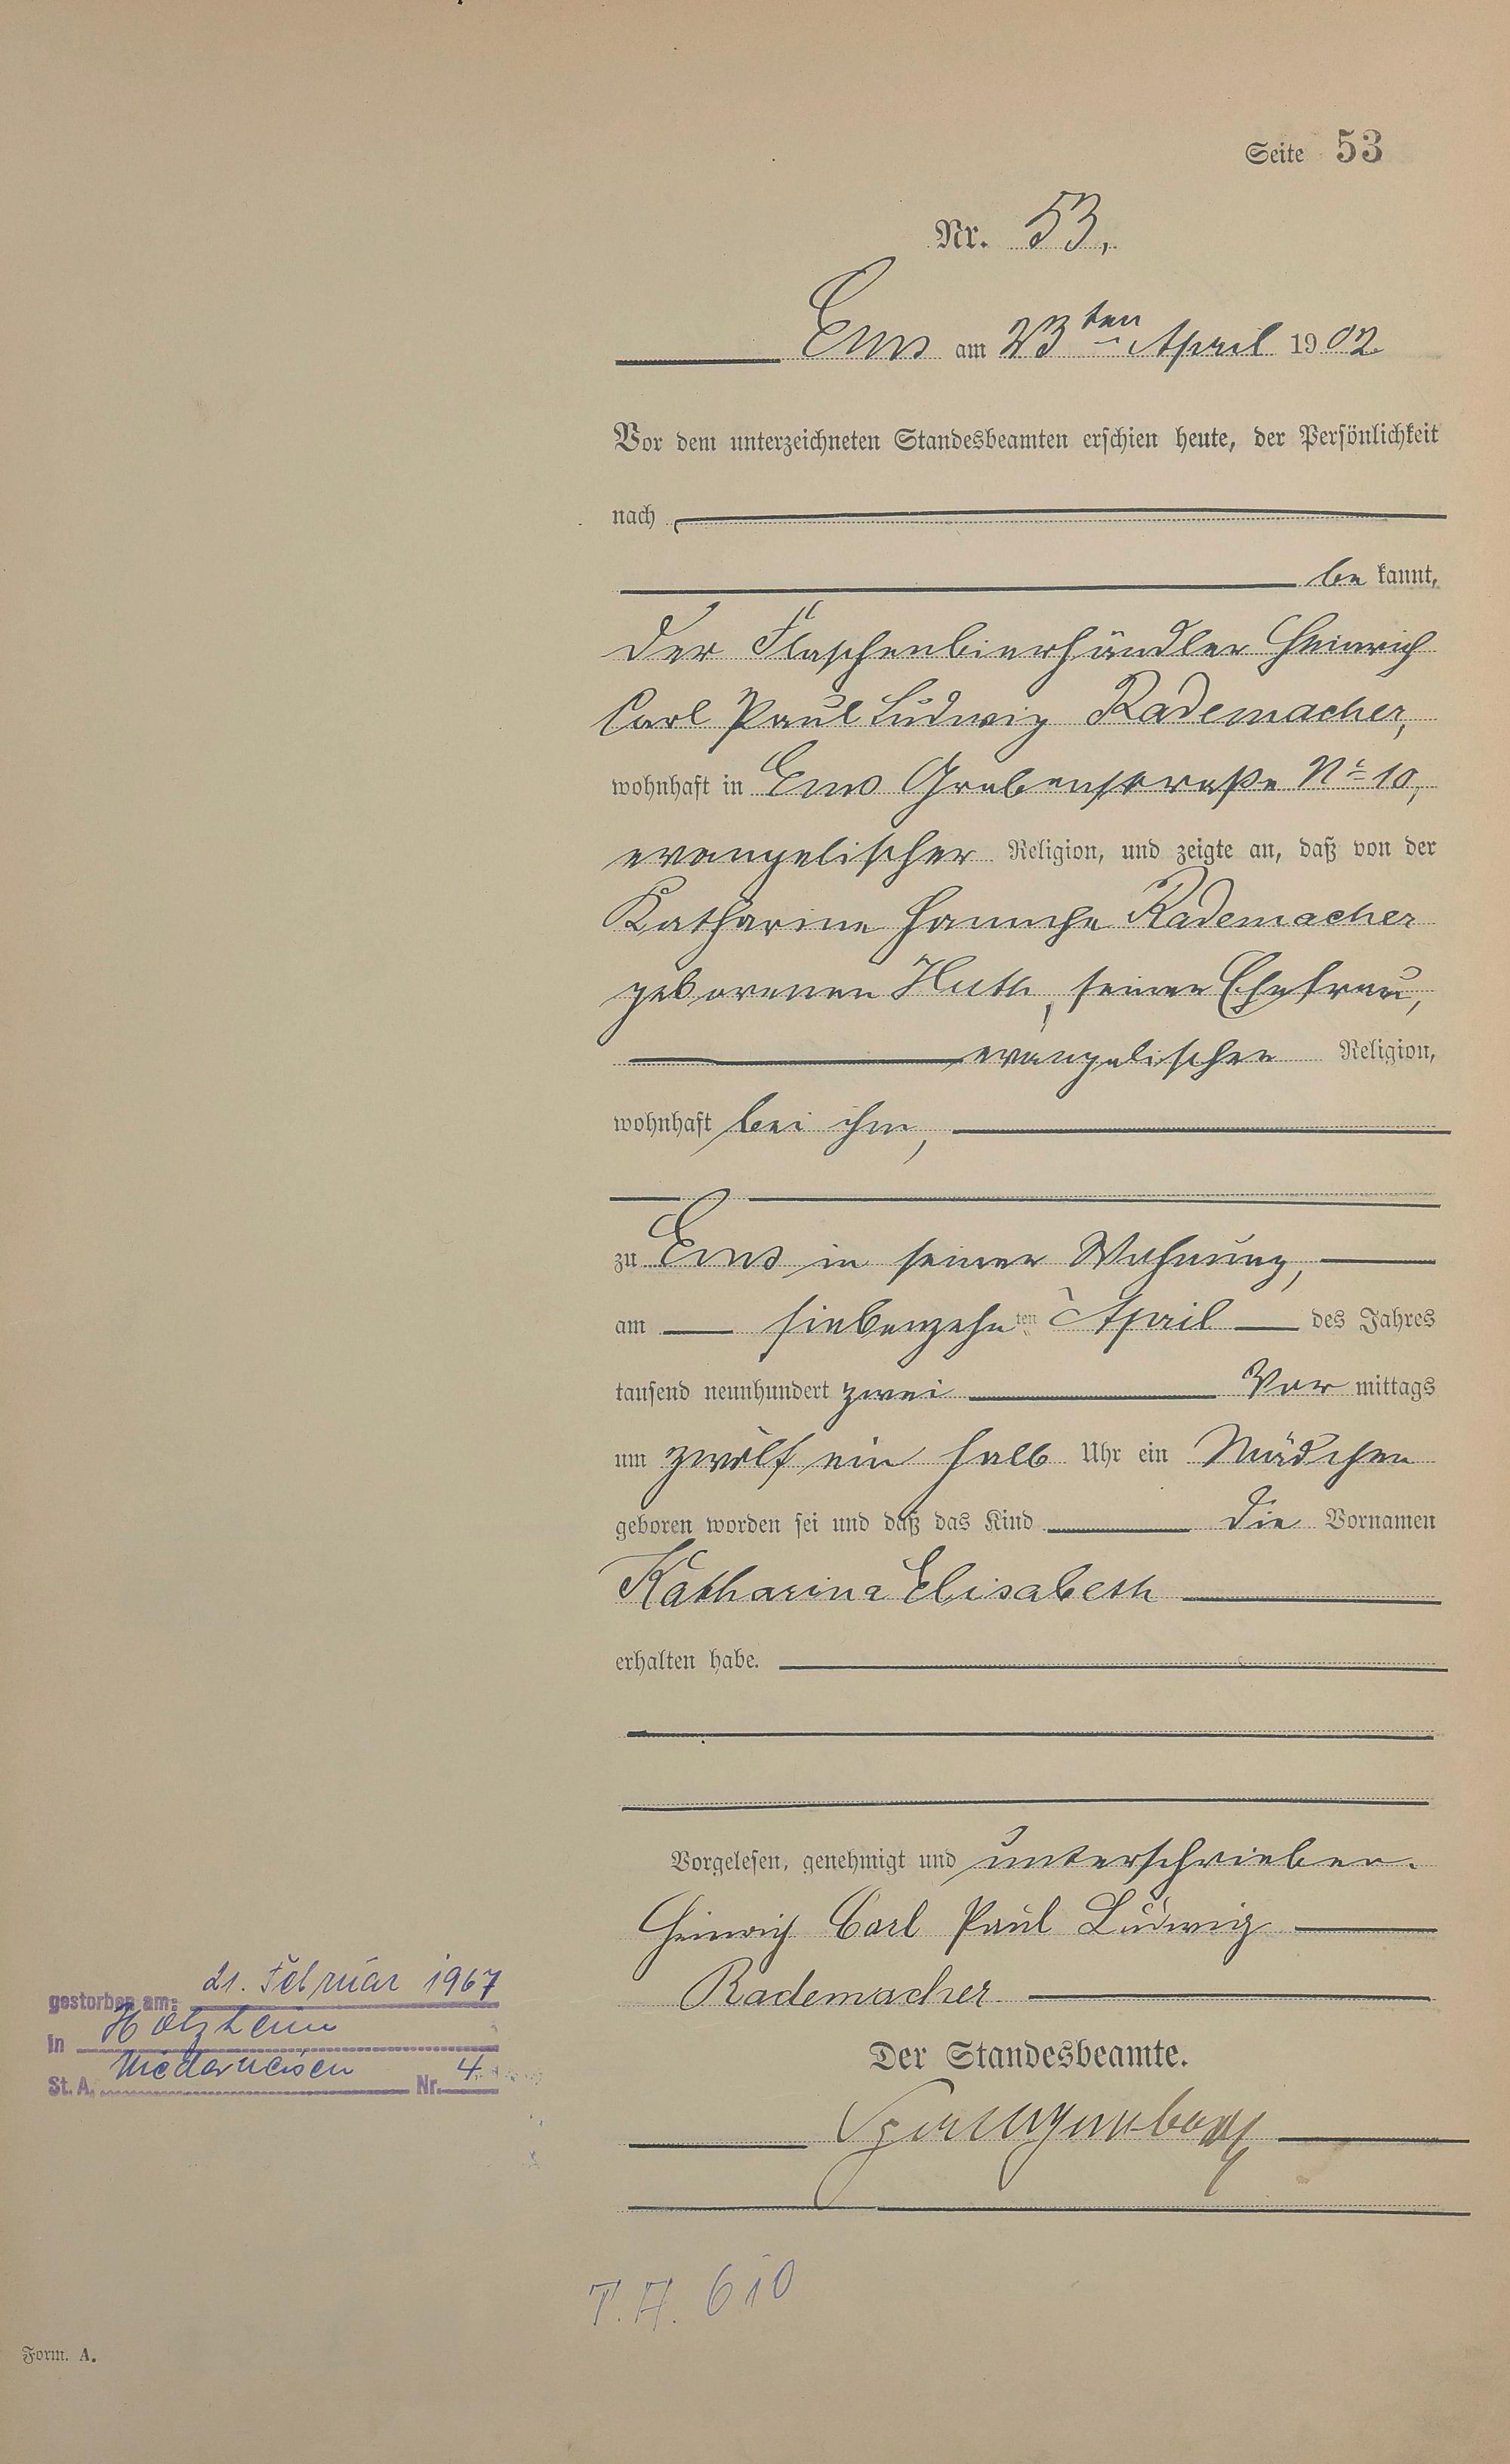 Seite 53
Nr. 53.
Ems am 23ten April 1902
Vor dem unterzeichneten Standesbeamten erschien heute, der Persönlichkeit
nach
be kannt,
der Flaschenbierhändler Heinrich
Carl Paul Ludwig Rademacher,
wohnhaft in Ems Grabenstraße No 10,
evangelischer Religion, und zeigte an, daß von der
Katharine Rademacher
geborenen Huth, seiner Ehefrau,
evangelischer Religion,
wohnhaft bei ihm,
zu Ems in seiner Wohnung,
am siebenzehnten April des Jahres
tausend neunhundert zwei Vor mittags
um zwölf ein halb Uhr ein Mädchen
geboren worden sei und daß das Kind die Vornamen
Katharina Elisabeth
erhalten habe.
Vorgelesen, genehmigt und unterschrieben.
Heinrich Carl Paul Ludwig
Rademacher
Der Standesbeamte.
gestorben am: 21. Februar 1967
in Holzheim
St. A. Niederneisen Nr. 4
T. A. 610
Form. A.